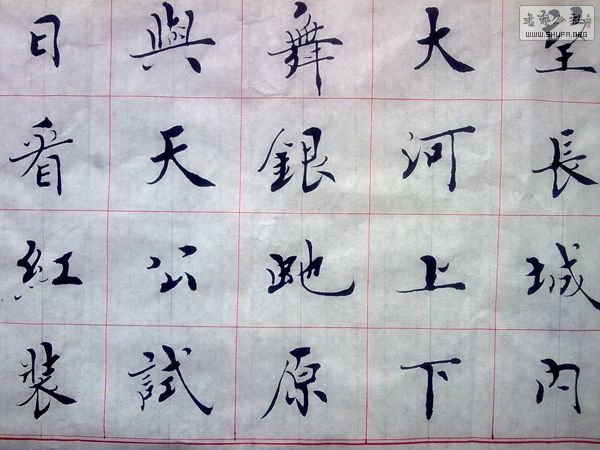 望長城内
大河上下
舞銀虵原
與天公試
日看紅裝
WWW.SHUFA.ORG